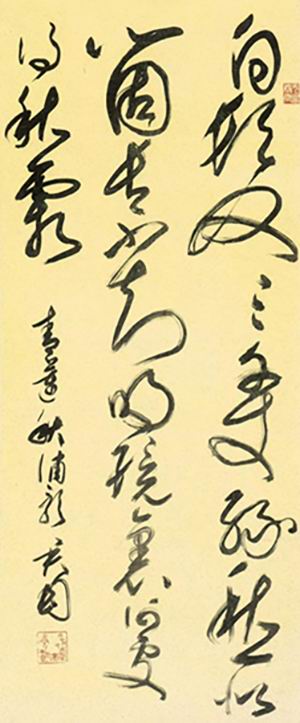 白髮三千丈緣愁似
箇長不知明鏡裏何處
得秋霜
青蓮秋浦歌